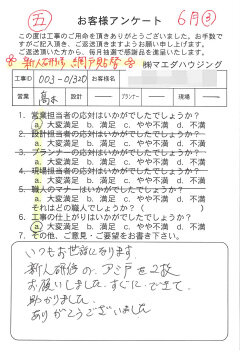 五
お客様アンケート
6月③
この度は工事のご用命を頂きありがとうございました。お手数で
すがご記入頂き、ご返送頂きますようお願い申し上げます。
ご返送頂いた方から、毎月抽選で感謝品を進呈いたします。
新人研修 網戸貼替 ㈱マエダハウジング
工事ID 003-0132D お客様名
営業 高木 設計 プランナー 現場
1. 営業担当者の応対はいかがでしたでしょうか？
a. 大変満足 b. 満足 c. やや不満 d. 不満
2. 設計担当者の応対はいかがでしたでしょうか？
a. 大変満足 b. 満足 c. やや不満 d. 不満
3. プランナーの応対はいかがでしたでしょうか？
a. 大変満足 b. 満足 c. やや不満 d. 不満
4. 現場担当者の応対はいかがでしたでしょうか？
a. 大変満足 b. 満足 c. やや不満 d. 不満
5. 職人のマナーはいかがでしたでしょうか？
それはどの職人でしょう？（ ）
a. 大変満足 b. 満足 c. やや不満 d. 不満
6. 工事の仕上がりはいかがでしたでしょうか？
a. 大変満足 b. 満足 c. やや不満 d. 不満
7. その他、ご意見・ご要望をお書き下さい。
いつもお世話になります
新人研修の、アミ戸を2枚
お願いしました。すぐに、できて
助かりました。
ありがとうございました